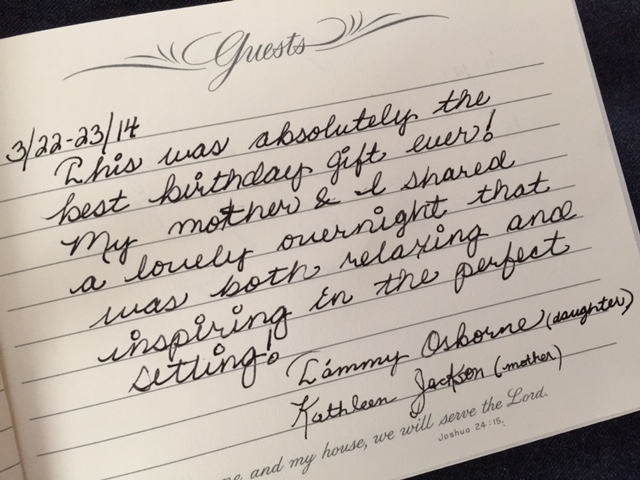 Guests
3/22-23/14
This was absolutely the
best birthday gift ever!
My mother & I shared
a lovely overnight that
was both relaxing and
inspiring in the perfect
setting!
Tammy Osborne (daughter)
Kathleen Jackson (mother)
me, and my house, we will serve the Lord.
Joshua 24:15.